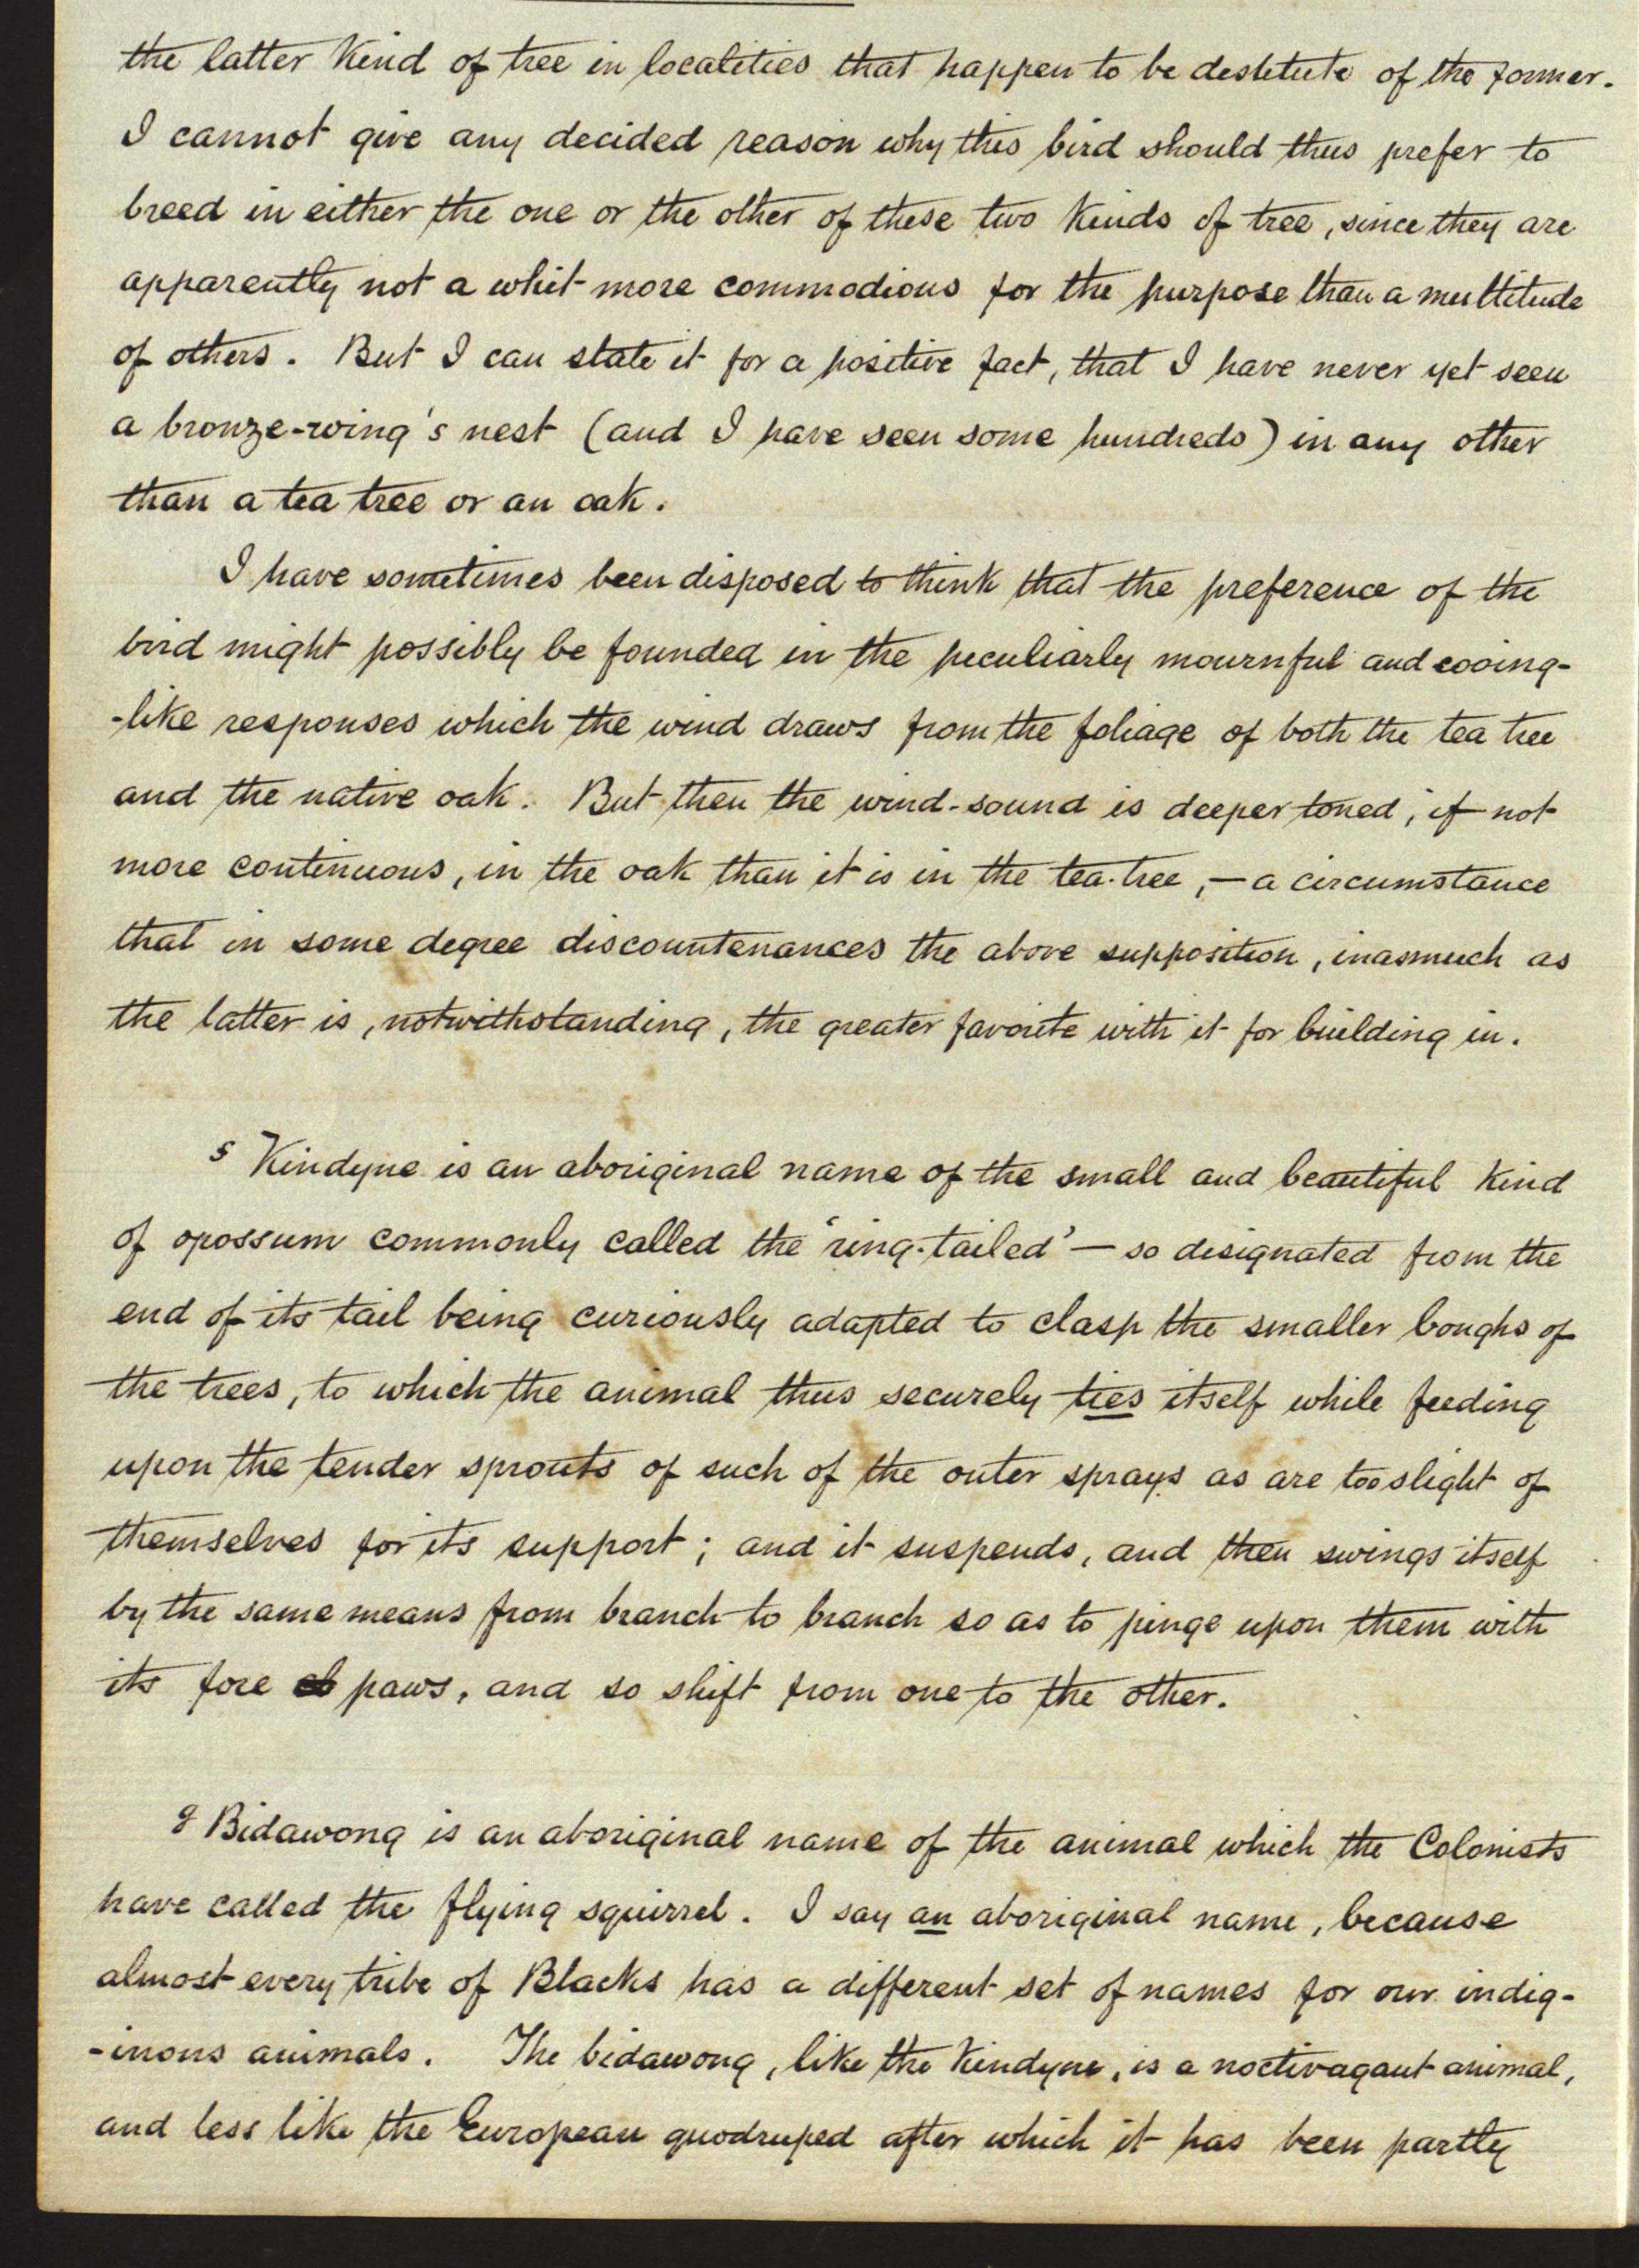 the latter kind of tree in localities that happen to be destitute of the former.
I cannot give any decided reason why this bird should thus prefer to
breed in either the one or the other of these two kinds of tree, since they are
apparently not a whit more commodious for the purpose than a multitude
of others. But I can state it for a positive fact, that I have never yet seen
a bronze-wing's nest (and I have seen some hundreds) in any other
than a tea tree or an oak.
I have sometimes been disposed to think that the preference of the
bird might possibly be founded in the peculiarly mournful and cooing-
-like responses which the wind draws from the foliage of both the tea tree
and the native oak. But then the wind-sound is deeper toned, if not
more continuous, in the oak than it is in the tea-tree, — a circumstance
that in some degree discountenances the above supposition, inasmuch as
the latter is, notwithstanding, the greater favorite with it for building in.
5 Kindyne is an aboriginal name of the small and beautiful kind
of opossum commonly called the 'ring-tailed' — so designated from the
end of its tail being curiously adapted to clasp the smaller boughs of
the trees, to which the animal thus securely ties itself while feeding
upon the tender sprouts of such of the outer sprays as are too slight of
themselves for its support; and it suspends, and then swings itself
by the same means from branch to branch so as to pinge upon them with
its fore paws, and so shift from one to the other.
Bidawong is an aboriginal name of the animal which the Colonists
have called the flying squirrel. I say an aboriginal name, because
almost every tribe of Blacks has a different set of names for our indig-
-inous animals. The bidawong, like the Kindyne, is a noctivagant animal,
and less like the European quodruped after which it has been partly